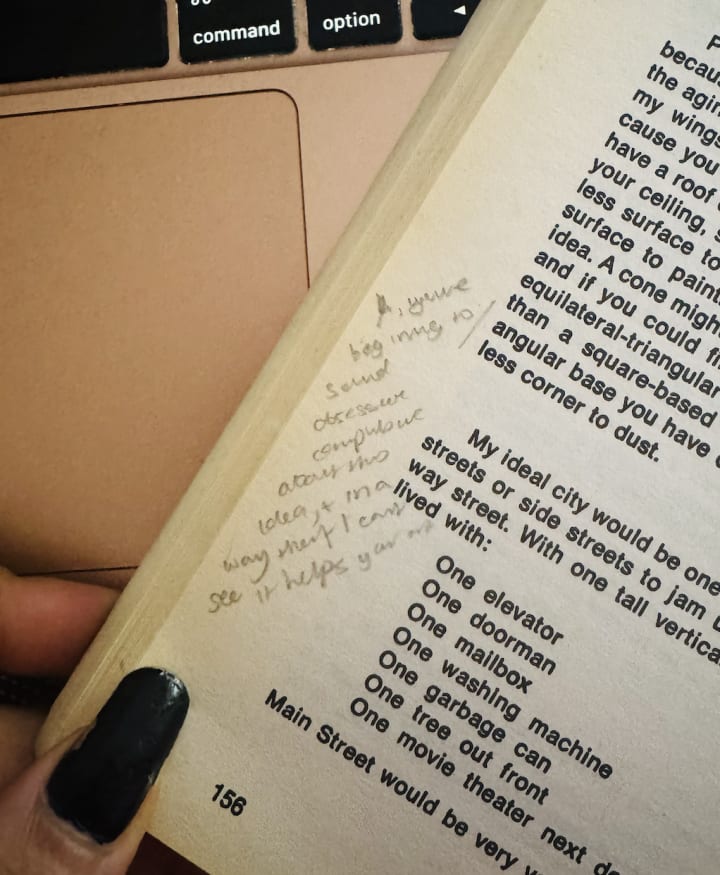 command
option
becau
the agin
my wings
cause you
have a roof
your ceiling, s
less surface to
surface to paint
idea. A cone might
and if you could fi
equilateral-triangular
than a square-based
angular base you have
less corner to dust.
My ideal city would be one
streets or side streets to jam u
way street. With one tall vertica
lived with:
One elevator
One doorman
One mailbox
One washing machine
One garbage can
One tree out front
One movie theater next do
Main Street would be very
156
A, you're
beginning to
sound
obsessive
compulsive
about this
idea, + in a
way that I can't
see it helps your art